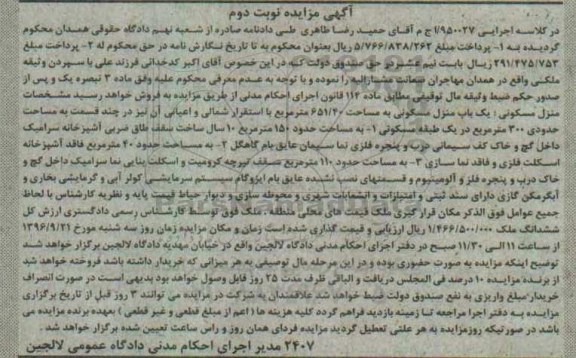 آگهی مزایده نوبت دوم
در کلاسه اجرایی ۹۵۰۰۲۷/اج م آقای حمید رضا طاهری طی دادنامه صادره از شعبه نهم دادگاه حقوقی همدان محکوم
گردیده به ۱- پرداخت مبلغ ۵/۷۶۶/۸۳۸/۲۶۲ ریال بعنوان محکوم به تا تاریخ نگارش نامه در حق محکوم له ۲- پرداخت مبلغ
۲۹۱/۴۷۵/۷۵۳ ریال بابت نیم عشر در حق صندوق دولت که در این خصوص آقای اکبر کدخدائی فرزند علی با سپردن وثیقه
ملکی واقع در همدان مهاجران ضمانت مشارالیه را نموده و با توجه به عدم معرفی محکوم علیه وفق ماده ۳ تبصره یک و پس از
صدور حکم ضبط وثیقه مال توقیفی مطابق ماده ۱۱۴ قانون اجرای احکام مدنی از طریق مزایده به فروش خواهد رسید مشخصات
منزل مسکونی : یک باب منزل مسکونی به مساحت ۶۵۱/۴۰ مترمربع با استقرار شمالی و اعیانی آن نیز در چند قسمت به مساحت
حدودی ۳۰۰ مترمربع در یک طبقه مسکونی ۱- به مساحت حدود ۱۵۰ مترمربع ۱۰ سال ساخت سقف طاق ضربی آشپزخانه سرامیک
داخل گچ و خاک کف سیمانی درب و پنجره فلزی نما سیمان عایق بام کاهگل ۲- به مساحت حدود ۴۰ مترمربع فاقد آشپزخانه
اسکلت فلزی و فاقد نما سازی ۳- به مساحت حدود ۱۱۰ مترمربع مسقف تیرچه کرومیت و اسکلت بنایی نما سرامیک داخل گچ و
خاک درب و پنجره فلز و آلومینیوم و قسمتهای نصب نشده عایق بام ایزوگام سیستم سرمایشی کولر آبی و گرمایشی بخاری و
آبگرمکن گازی دارای سند ثبتی و امتیازات و انشعابات شهری و محوطه سازی و دیوار حیاط قیمت پایه و نظریه کارشناس با لحاظ
جمیع عوامل فوق الذکر مکان قرار گیری ملک قیمت های محلی منطقه ملک فوق توسط کارشناس رسمی دادگستری ارزش کل
ششدانگ ملک ۱/۴۶۶/۵۰۰/۰۰۰ ریال ارزیابی و قیمت گذاری شده است زمان و مکان مزایده زمان روز سه شنبه مورخ ۱۳۹۶/۹/۲۱
از ساعت ۱۱ الی ۱۱/۳۰ صبح در دفتر اجرای احکام مدنی دادگاه لالجین واقع در خیابان مهدیه دادگاه لالجین برگزار خواهد شد
توضیح اینکه مزایده به صورت حضوری بوده و در این مرحله مال توصیفی به هر میزانی که خریدار داشته باشد فروخته خواهد شد
از برنده مزایده ۱۰ درصد فی المجلس دریافت و الباقی ظرف مدت ۲۵ روز قابل وصول خواهد بود بدیهی است در صورت انصراف
خریدار مبلغ واریزی به نفع صندوق دولت ضبط خواهد شد علاقمندان به شرکت در مزایده می توانند ۳ روز قبل از تاریخ برگزاری
مزایده به دفتر اجرا مراجعه تا زمینه بازدید فراهم گردد کلیه هزینه ها ( اعم از مبلغ قطعی و غیر قطعی ) بعهده برنده مزایده می
باشد در صورتیکه روزمزایده به هر علتی تعطیل گردید مزایده فردای همان روز و راس ساعت تعیین شده برگزار خواهد شد .
۲۴۰۷ مدیر اجرای احکام مدنی دادگاه عمومی لالجین